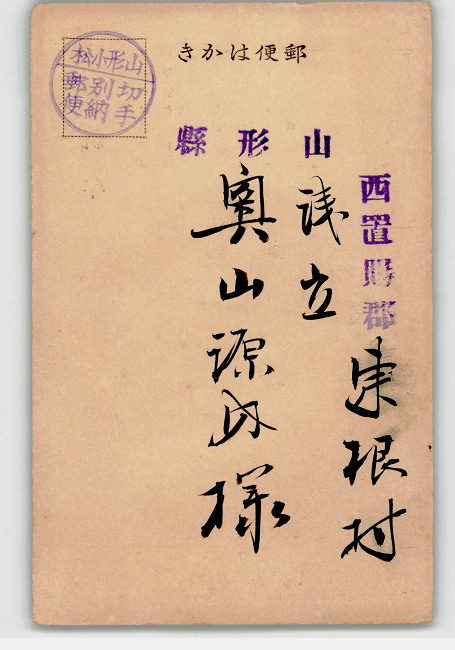 郵便はかき
山形小松
切手
別納
郵便
山形縣
西置賜郡
東根村
浅立
奥山源内様